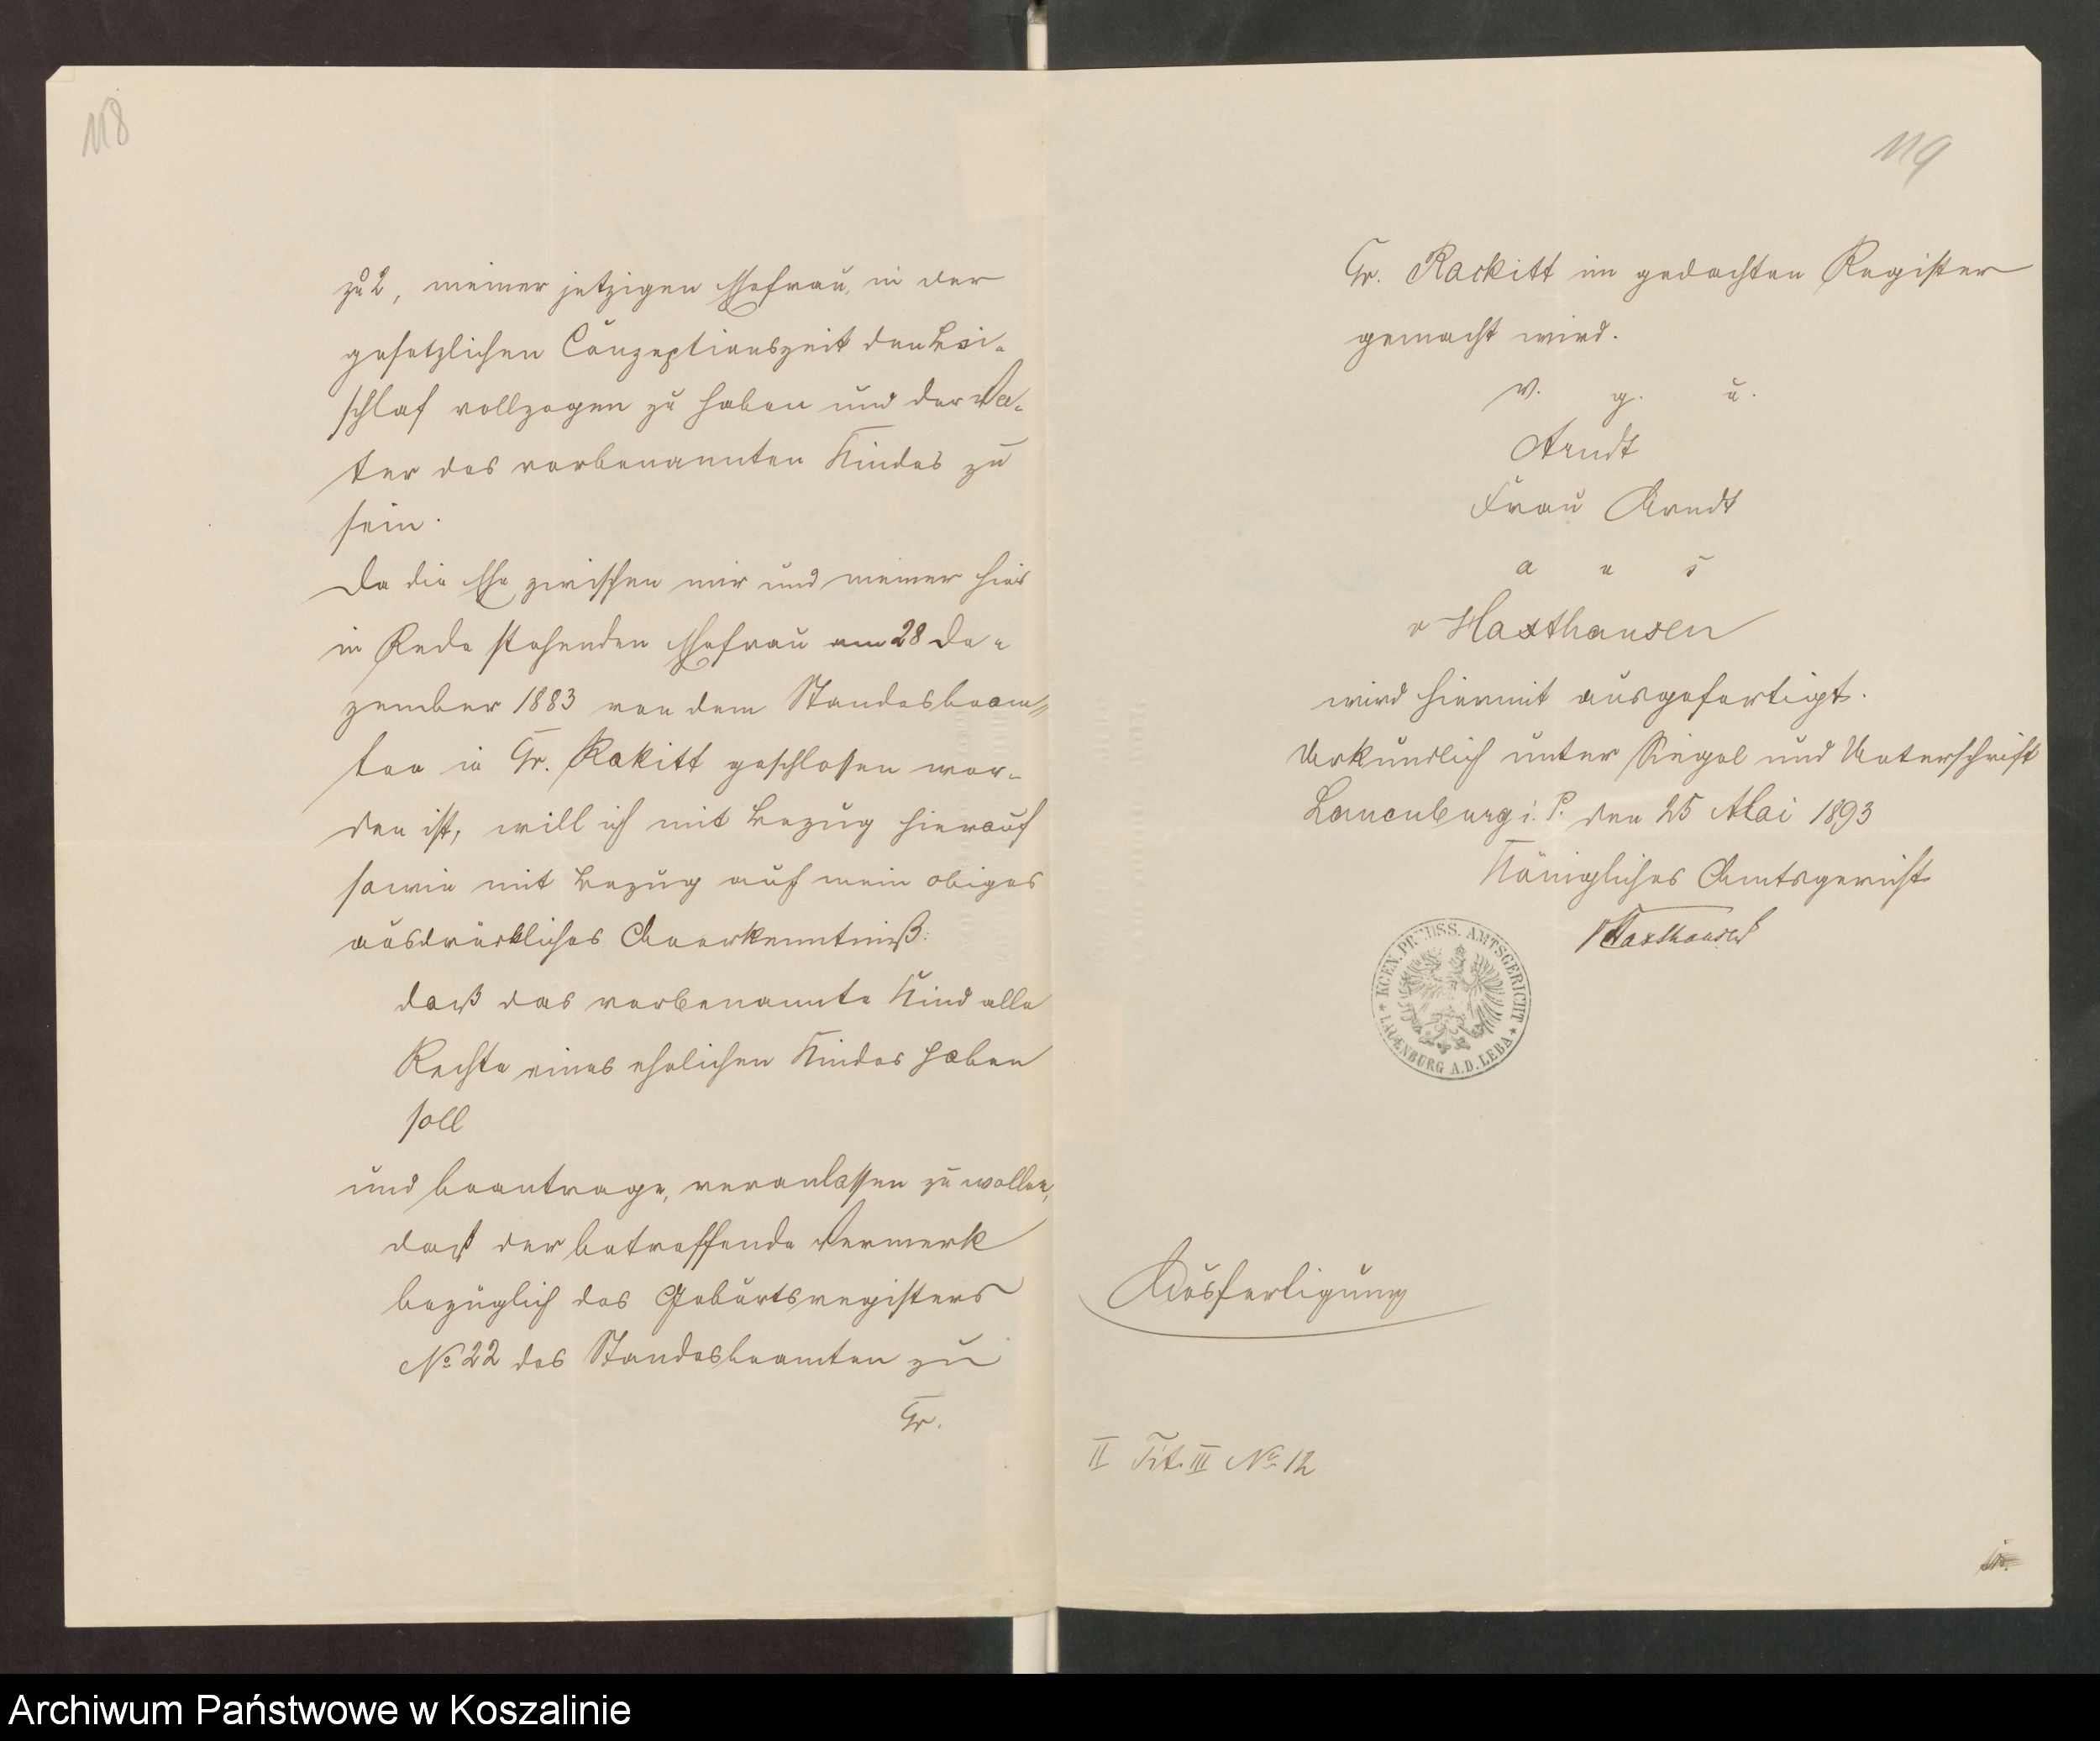 118
zu 2, meiner jetzigen Ehefrau, in der
gesetzlichen Conzeptionszeit den Bei-
schlaf vollzogen zu haben und der Va-
ter des vorbenannten Kindes zu
sein.
Da die Ehe zwischen mir und meiner hier
in Rede stehenden Ehefrau am 28 De-
zember 1883 von dem Standesbeam-
ten in Gr. Rakitt geschlossen wor-
den ist, will ich mit Bezug hierauf
sowie mit Bezug auf mein obiges
ausdrückliches Anerkenntniß:
daß das vorbenannte Kind alle
Rechte eines ehelichen Kindes haben
soll
und beantrage, veranlassen zu wollen,
daß der betreffende Vermerk
bezüglich des Geburtsregisters
No 22 des Standesbeamten zu
Gr.
119
Gr. Rackitt im gedachten Register
gemacht wird.
v. g. u.
Arndt
Frau Arndt
a u s
v Haxthausen
wird hiermit ausgefertigt.
Urkundlich unter Siegel und Unterschrift
Lauenburg i. P. den 25 Mai 1893
Königliches Amtsgericht
v Haxthausen
KGEN. PREUSS. AMTSGERICHT
* LAUENBURG A.D. LEBA *
Ausfertigung
II Tit. III No 12
Archiwum Państwowe w Koszalinie